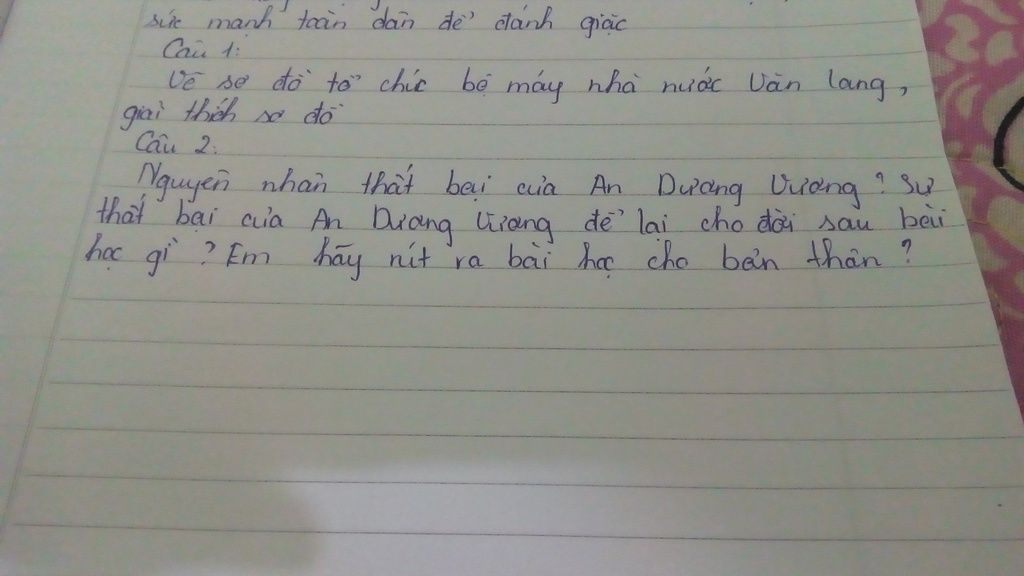 sức mạnh toàn dân để đánh giặc
Câu 1:
Vẽ sơ đồ tổ chức bộ máy nhà nước Văn Lang,
giải thích sơ đồ
Câu 2:
Nguyên nhân thất bại của An Dương Vương? Sự
thất bại của An Dương Vương để lại cho đời sau bài
học gì? Em hãy rút ra bài học cho bản thân?